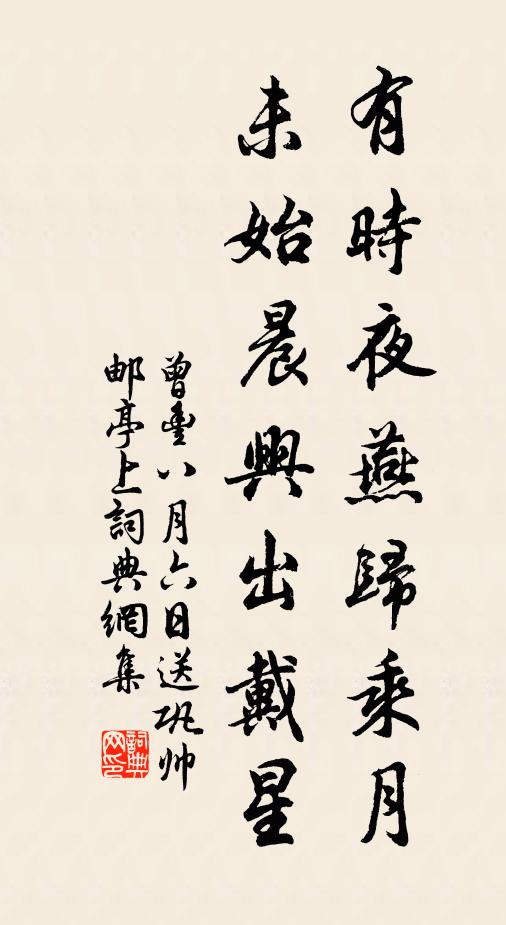 有時夜燕歸乘月
未始晨興出戴星
曾豐八月六日送巩帅
邮亭上詞典網集
詞典网印